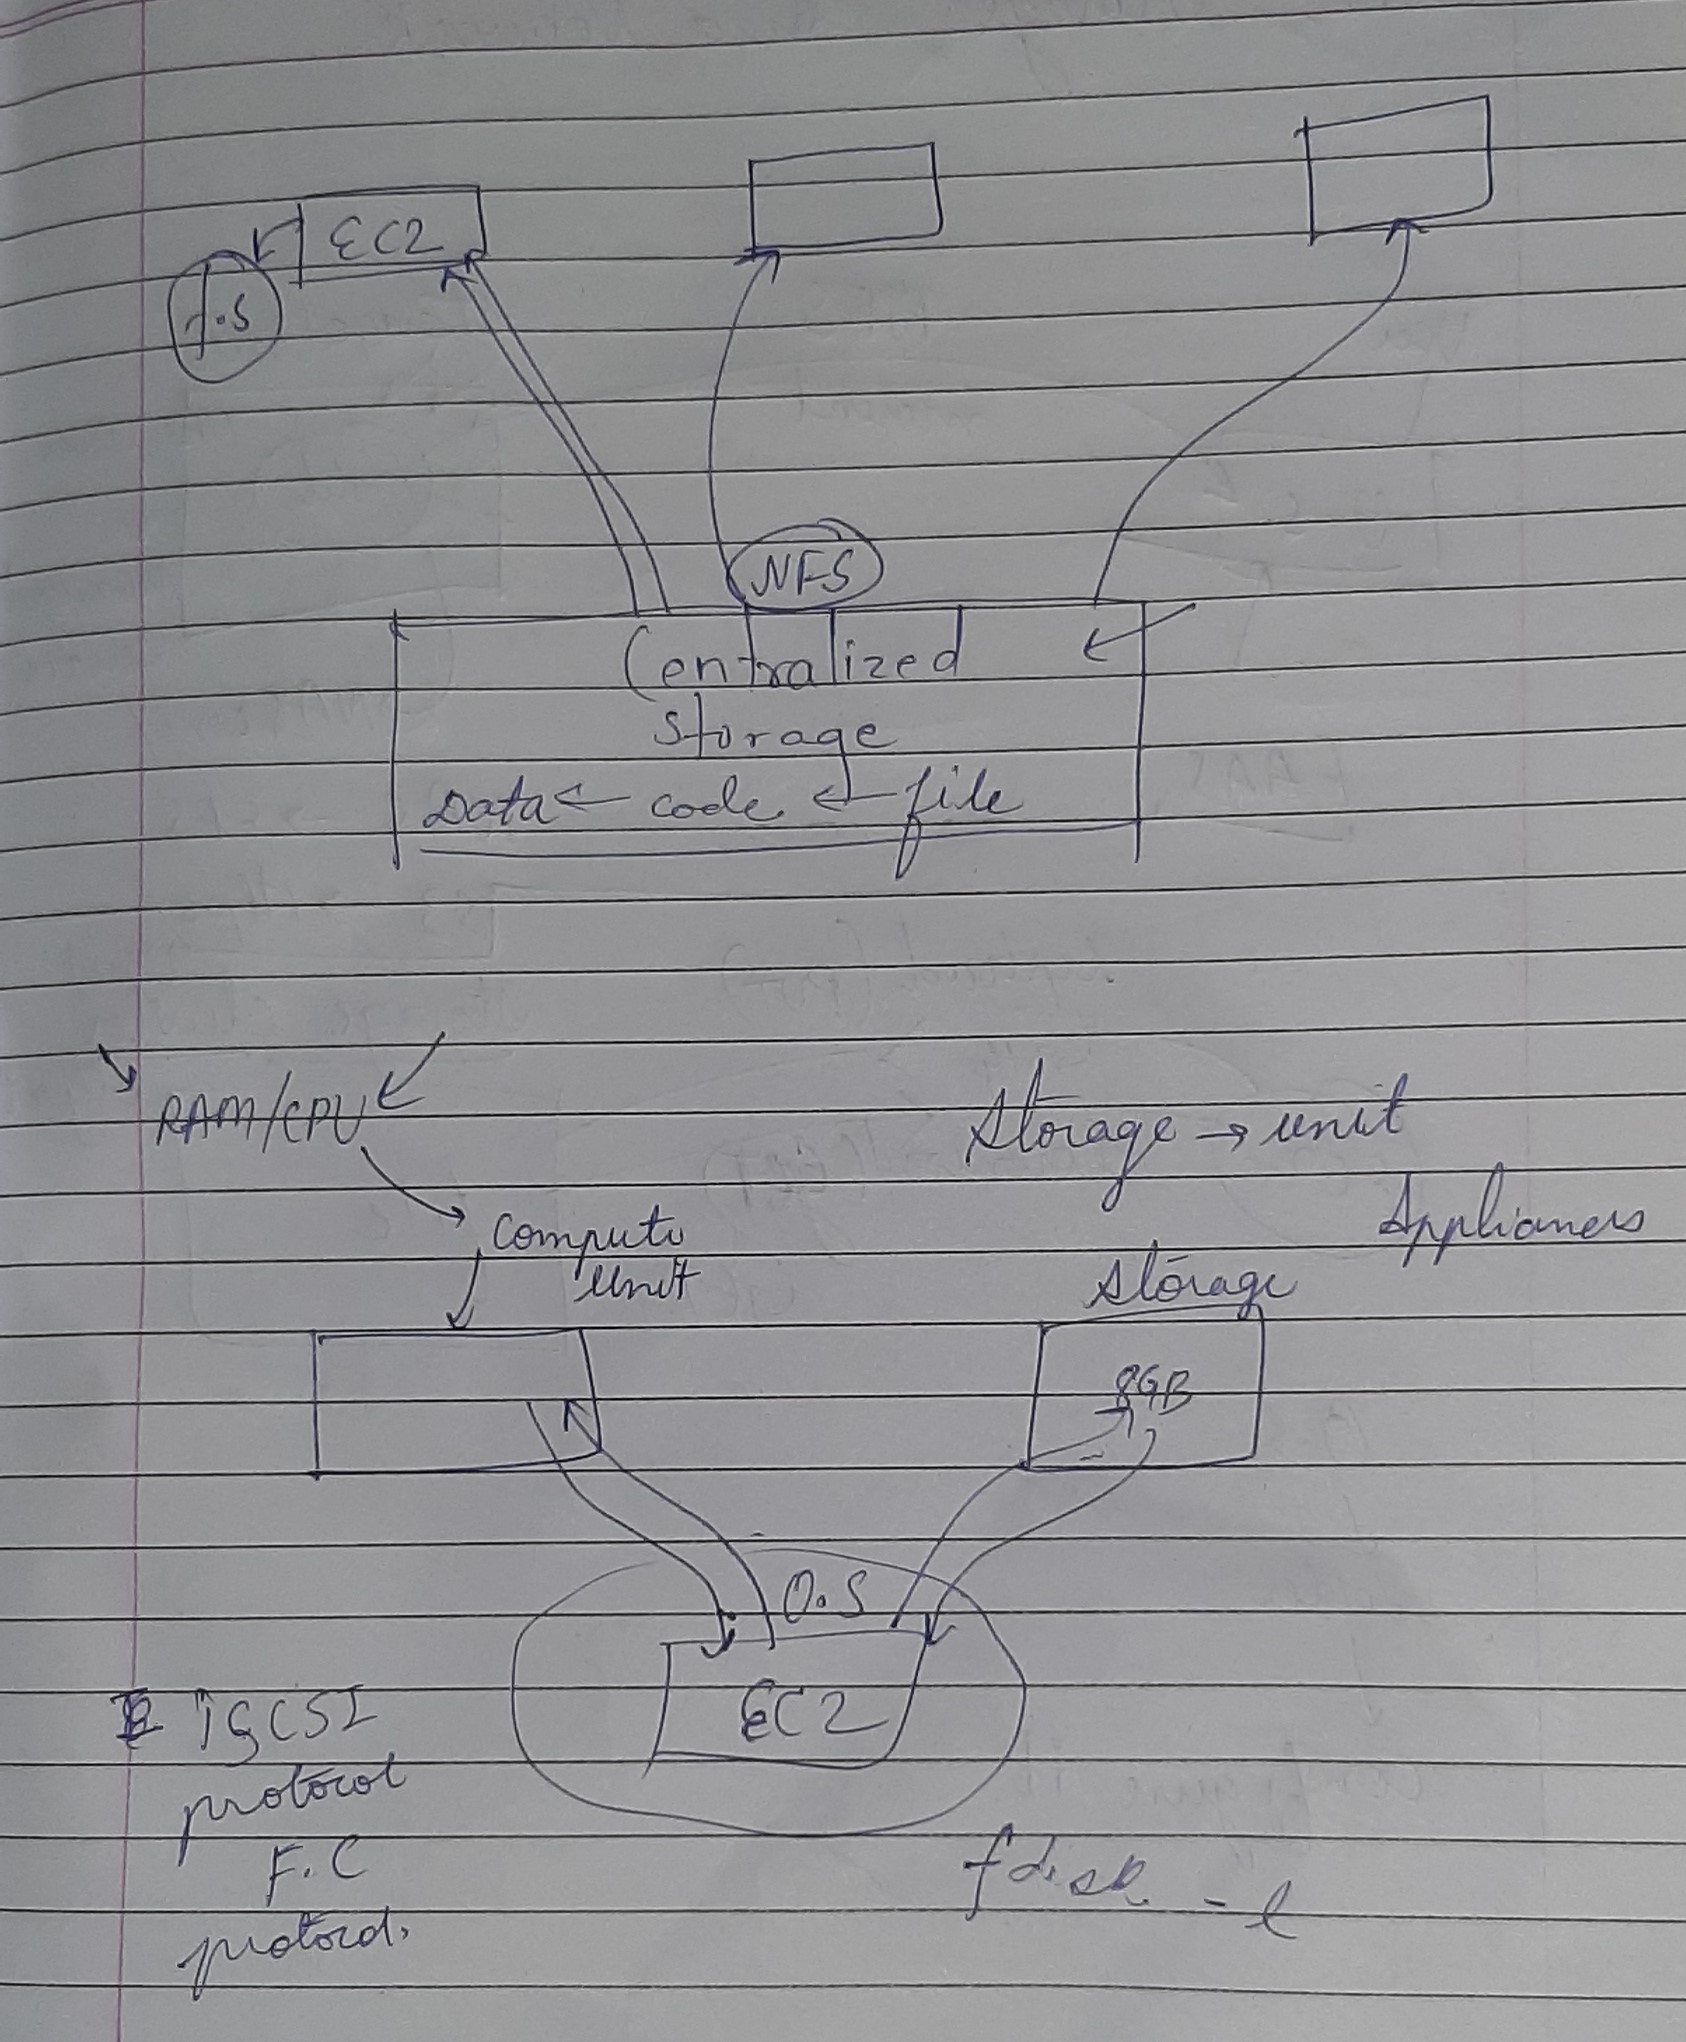 EC2
f.s
NFS
Centralized
storage
Data ← code ← file
RAM/CPU
Storage → unit
compute
unit
Storage
8GB
O.S
EC2
iSCSI
protocol
F.C
protocol.
fdisk -l